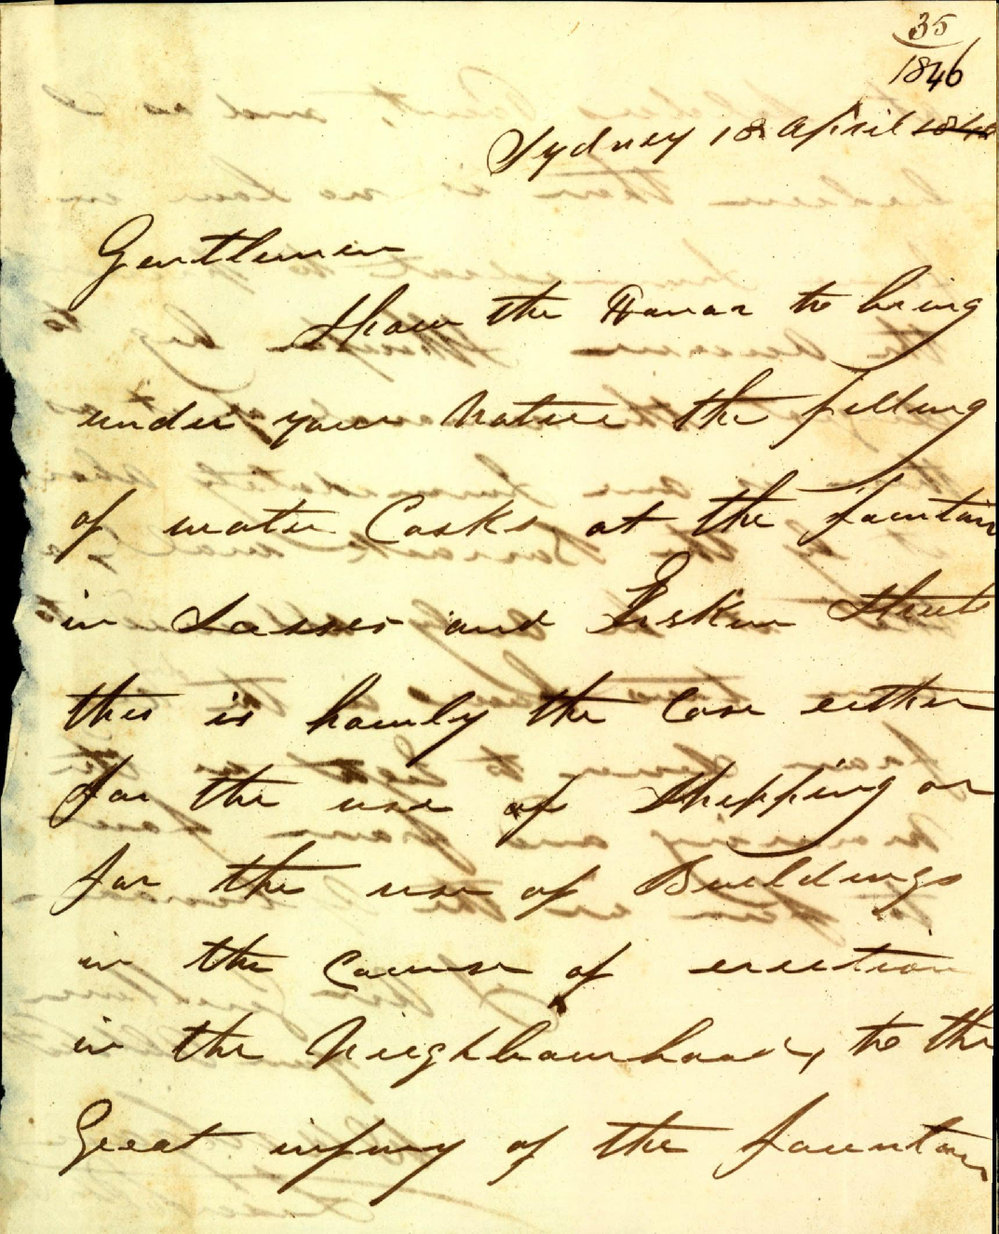 35
1846
Sydney 18 April 1846
Gentlemen
I have the Honor to bring
under your Notice the filling
of water Casks at the fountain
in Sussex and Erskine Streets
this is hourly the Case either
for the use of Shipping or
for the use of Buildings
in the Course of erection
in the Nieghbourhood, to the
Great injury of the fountain